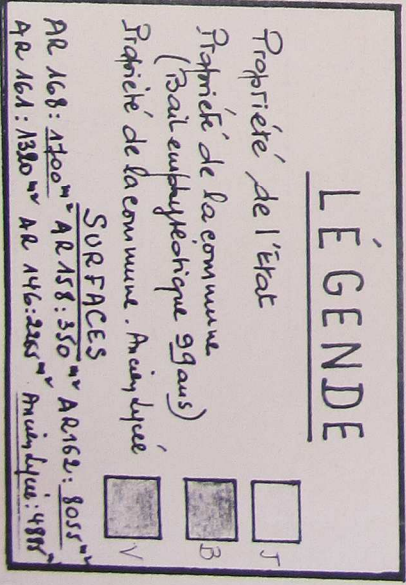 LÉGENDE
Propriété de l'Etat J
Propriété de la commune B
(Bail emphytéotique 99 ans)
Propriété de la commune. Ancien Lycée V
SURFACES
AR 168: 1700 m² AR 158: 350 m² AR 162: 8055 m²
AR 161: 1320 m² AR 146: 2265 m² Ancien Lycée: 4885 m²